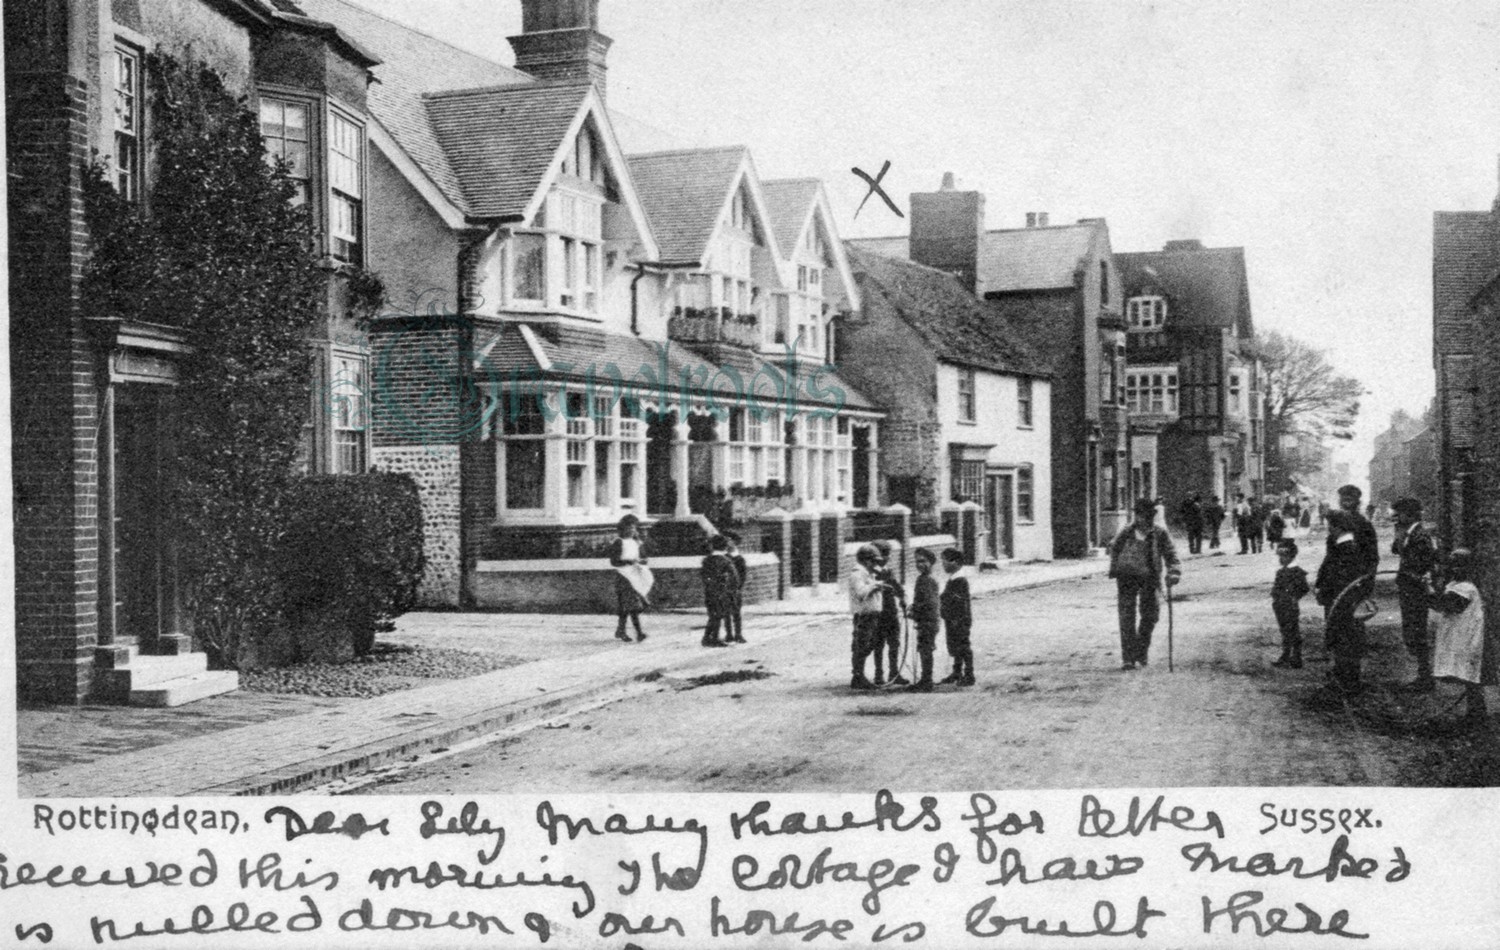 X
Grandroots
Rottingdean, Dear Lily Many thanks for letter Sussex.
received this morning The Cottage I have marked
is pulled down & our house is built there